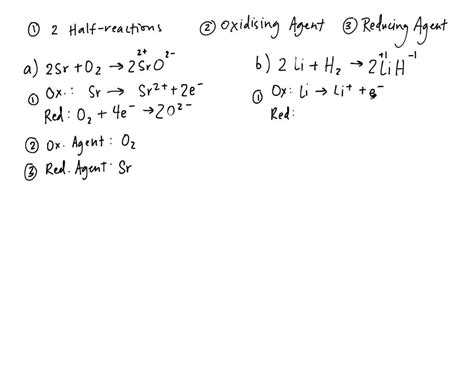 ① 2 Half-reactions ② Oxidising Agent ③ Reducing Agent
a) 2Sr + O₂ → 2Sr²⁺O²⁻
① Ox.: Sr → Sr²⁺ + 2e⁻
Red: O₂ + 4e⁻ → 2O²⁻
② Ox. Agent: O₂
③ Red. Agent: Sr
b) 2 Li + H₂ → 2Li⁺¹H⁻¹
① Ox: Li → Li⁺ + e⁻
Red: